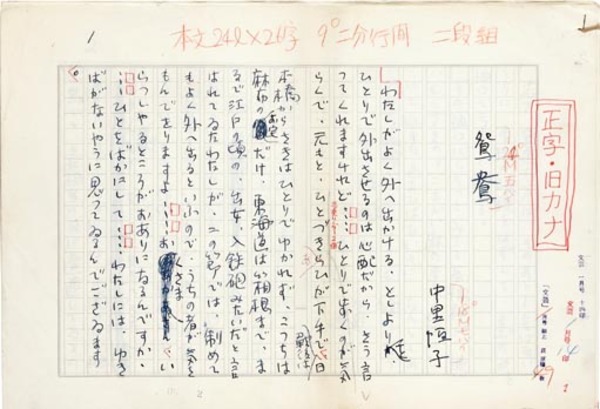 本文24l×26字 9°二分行間 二段組
1
正字・旧カナ
鴛鴦
中里恒子
わたしがよく外へ出かける、としよりを
ひとりで外出させるのは心配だから、さう言
ってくれますけれど……ひとりで歩くのが気
らくで、元もと、ひとづきあひが下手で、日
本橋からさきはひとりでゆかれず、こっちは
麻布の だけ、東海道は箱根まで、ま
るで江戸の頃の、出女、入鉄砲みたいだと言
はれてゐたわたしが、この節では、制めて
もよく外へ出るといふので、うちの者が気を
もんでをりますよ……おくさまい
らっしゃるところがおありになるんですか、
……ひとをばかにして……わたしには、ゆき
ばがないやうに思ってゐるんでございます